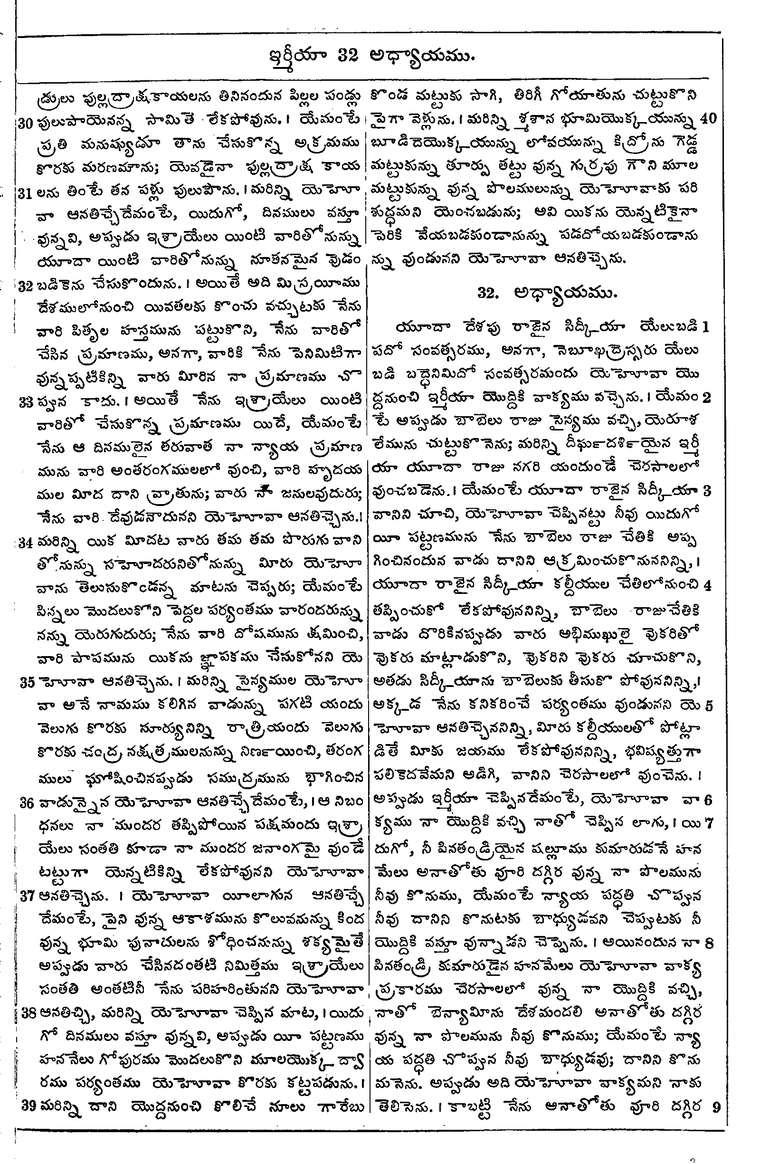 ఇర్మీయా 32 అధ్యాయము.
డ్రులు పుల్లద్రాక్షకాయలను తినినందున పిల్లల పండ్లు
30 పులుపాయెనన్న సామితె లేకపోవును. । యేమంటే
ప్రతి మనుష్యుడూ తాను చేసుకొన్న అక్రమము
కొరకు మరణమౌను; యెవడైనా పుల్లద్రాక్ష కాయ
31 లను తింటే తన పళ్లు పులుపౌను. । మరిన్ని యెహోు
వా ఆనతిచ్చేదేమంటే, యిదుగో, దినములు వస్తూ
వున్నవి, అప్పుడు ఇశ్రాయేలు యింటి వారితోనున్ను
యూదా యింటి వారితోనున్ను నూతనమైన వుడం
32 బడికెను చేసుకొందును. । అయితే అది మిస్రయీము
దేశములోనుంచి యివతలకు కొంచు వచ్చుటకు నేను
వారి పితృల హస్తమును పట్టుకొని, నేను వారితో
చేసిన ప్రమాణము, అనగా, వారికి నేను పెనిమిటిగా
వున్నప్పటికిన్ని వారు మీరిన నా ప్రమాణము చొ
33 ప్పున కాదు. । అయితే నేను ఇశ్రాయేలు యింటి
వారితో చేసుకొన్న ప్రమాణము యిదే, యేమంటే
నేను ఆ దినములైన తరువాత నా న్యాయ ప్రమాణ
మును వారి అంతరంగములలో వుంచి, వారి హృదయ
ముల మీద దాని వ్రాతును; వారు నా జనులవుదురు;
నేను వారి దేవుడనౌదునని యెహోవా ఆనతిచ్చెను. ।
34 మరిన్ని యిక మీదట వారు తమ తమ పొరుగు వాని
తోనున్ను సహోదరునితోనున్ను మీరు యెహో
వాను తెలుసుకొండన్న మాటను చెప్పరు; యేమంటే
పిన్నలు మొదలుకొని పెద్దల పర్యంతము వారందరున్ను
నన్ను యెరుగుదురు; నేను వారి దోషమును క్షమించి,
వారి పాపమును యికను జ్ఞాపకము చేసుకోనని యె
35 హోవా ఆనతిచ్చెను. । మరిన్ని సైన్యముల యెహో
వా అనే నామము కలిగిన వాడున్ను పగటి యందు
వెలుగు కొరకు సూర్యునిన్ని రాత్రియందు వెలుగు
కొరకు చంద్ర నక్షత్రములనున్ను నిర్ణయించి, తరంగ
ములు ఘోషించినప్పుడు సముద్రమును భాగించిన
36 వాడున్నైన యెహోవా ఆనతిచ్చేదేమంటే, । ఆ నిబం
ధనలు నా ముందర తప్పిపోయిన పక్షమందు ఇశ్రా
యేలు సంతతి కూడా నా ముందర జనాంగమై వుండే
టట్టుగా యెన్నటికిన్ని లేకపోవునని యెహోవా
37 ఆనతిచ్చెను. । యెహోవా యీలాగున ఆనతిచ్చే
దేమంటే, పైని వున్న ఆకాశమును కొలువనున్ను కింద
వున్న భూమి పునాదులను శోధించనున్ను శక్యమైతే
అప్పుడు వారు చేసినదంతటి నిమిత్తము ఇశ్రాయేలు
సంతతి అంతటినీ నేను పరిహరింతునని యెహోవా
38 ఆనతిచ్చి, మరిన్ని యెహోవా చెప్పిన మాట, । యిదు
గో దినములు వస్తూ వున్నవి, అప్పుడు యీ పట్టణము
హననేలు గోపురము మొదలుకొని మూలయొక్క ద్వా
రము పర్యంతము యెహోవా కొరకు కట్టపడును. ।
39 మరిన్ని దాని యొద్దనుంచి కొలిచే నూలు గారేబు
కొండ మట్టుకు సాగి, తిరిగీ గోయాతును చుట్టుకొని
పైగా వెళ్లును. । మరిన్ని శ్మశాన భూమియొక్కయున్ను 40
బూడిదెయొక్కయున్ను లోవయున్ను కిద్రోను గెడ్డ
మట్టుకున్ను తూర్పు తట్టు వున్న గుర్రపు గౌని మూల
మట్టుకున్ను వున్న పొలములున్ను యెహోవాకు పరి
శుద్ధమని యెంచబడును; అవి యికను యెన్నటికైనా
పెరికి వేయబడకుండానున్ను పడదోయబడకుండాను
న్ను వుండునని యెహోవా ఆనతిచ్చెను.
32. అధ్యాయము.
యూదా దేశపు రాజైన సిద్కీయా యేలుబడి 1
పదో సంవత్సరము, అనగా, నెబూఖద్రెస్సరు యేలు
బడి బద్ధెనిమిదో సంవత్సరమందు యెహోవా యొ
ద్దనుంచి ఇర్మీయా యొద్దికి వాక్యము వచ్చెను. । యేమం 2
టే అప్పుడు బాబెలు రాజు సైన్యము వచ్చి, యెరూశ
లేమును చుట్టుకొనెను; మరిన్ని దీర్ఘదర్శియైన ఇర్మీ
యా యూదా రాజు నగరి యందుండే చెరసాలలో
వుంచబడెను. । యేమంటే యూదా రాజైన సిద్కీయా 3
వానిని చూచి, యెహోవా చెప్పినట్టు నీవు యిదుగో
యీ పట్టణమును నేను బాబెలు రాజు చేతికి అప్ప
గించినందున వాడు దానిని ఆక్రమించుకొనుననిన్ని, ।
యూదా రాజైన సిద్కీయా కల్దీయుల చేతిలోనుంచి 4
తప్పించుకో లేకపోవుననిన్ని, బాబెలు రాజుచేతికి
వాడు దొరికినప్పుడు వారు అభిముఖులై వొకరితో
వొకరు మాట్లాడుకొని, వొకరిని వొకరు చూచుకొని,
అతడు సిద్కీయాను బాబెలుకు తీసుకొ పోవుననిన్ని, ।
అక్కడ నేను కనికరించే పర్యంతము వుండునని యె 5
హోవా ఆనతిచ్చెననిన్ని, మీరు కల్దీయులతో పోట్లా
డితే మీకు జయము లేకపోవుననిన్ని, భవిష్యత్తుగా
పలికెదవేమని అడిగి, వానిని చెరసాలలో వుంచెను. ।
అప్పుడు ఇర్మీయా చెప్పినదేమంటే, యెహోవా వా 6
క్యము నా యొద్దికి వచ్చి నాతో చెప్పిన లాగు, । యి 7
దుగో, నీ పినతండ్రియైన షల్లూము కుమారుడనే హన
మేలు అనాతోతు వూరి దగ్గిర వున్న నా పొలమును
నీవు కొనుము, యేమంటే న్యాయ పద్ధతి చొప్పున
నీవు దానిని కొనుటకు బాధ్యుడవని చెప్పటకు నీ
యొద్దికి వస్తూ వున్నాడని చెప్పెను. । అయినందున నా 8
పినతండ్రి కుమారుడైన హనమేలు యెహోవా వాక్య
ప్రకారము చెరసాలలో వున్న నా యొద్దికి వచ్చి,
నాతో బెన్యామీను దేశమందలి అనాతోతు దగ్గిర
వున్న నా పొలమును నీవు కొనుము; యేమంటే న్యా
య పద్ధతి చొప్పున నీవు బాధ్యుడవు; దానిని కొను
మనెను. అప్పుడు అది యెహోవా వాక్యమని నాకు
తెలిసెను. । కాబట్టి నేను అనాతోతు వూరి దగ్గిర 9